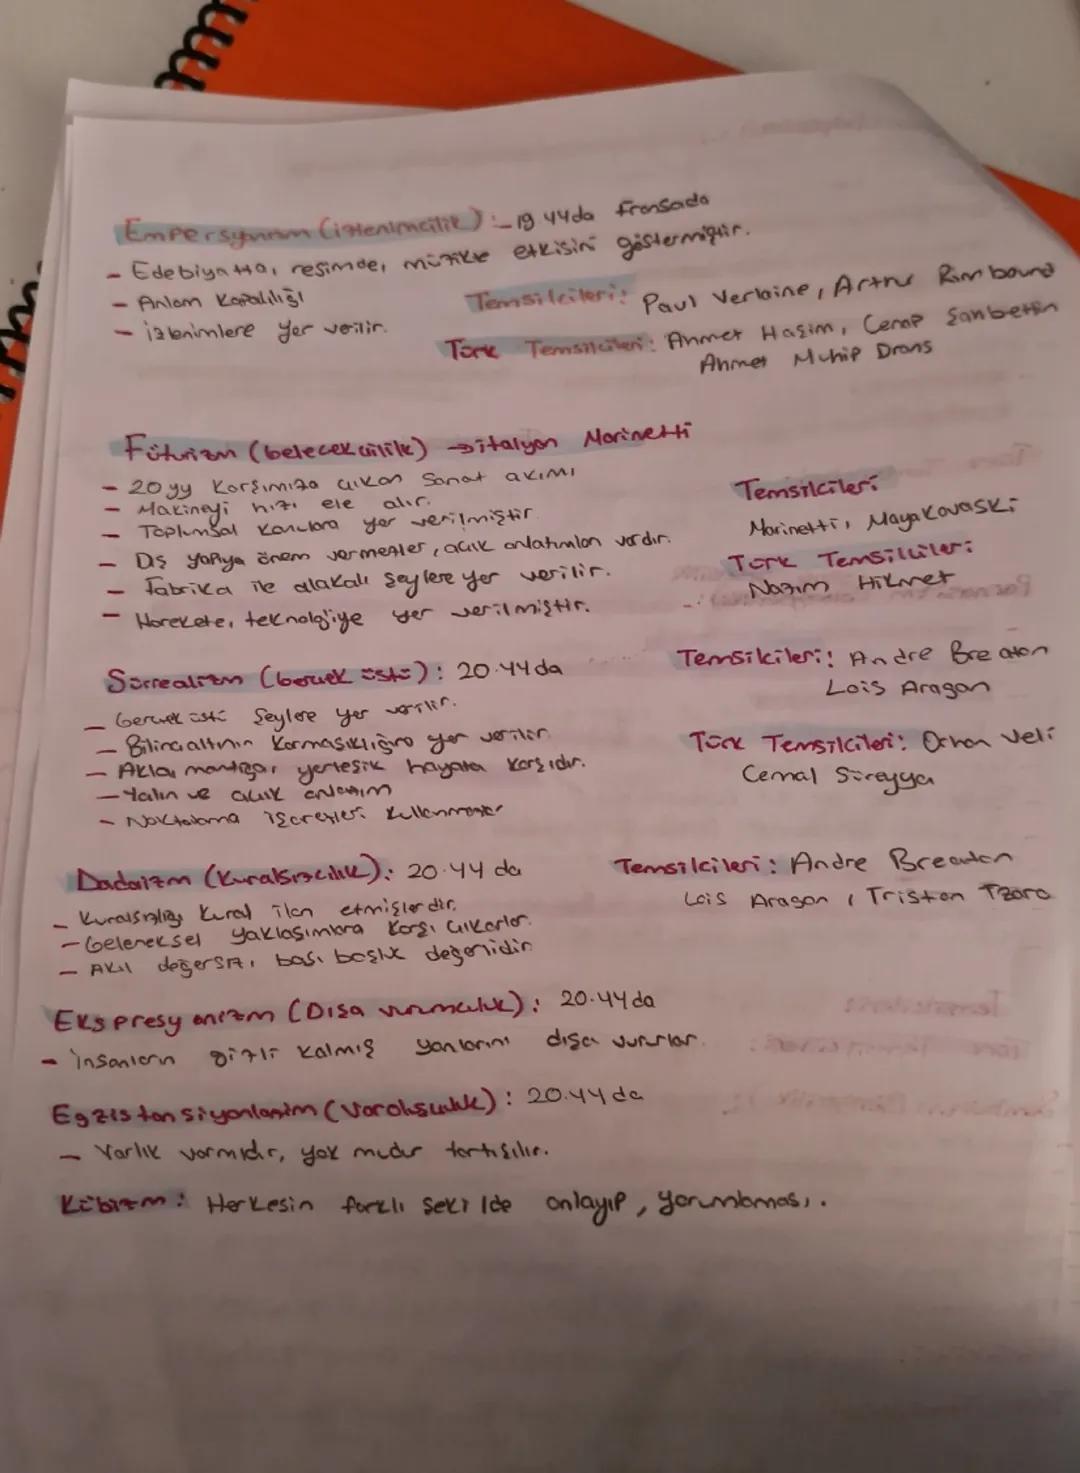 Empersyonizm (izlenimcilik) :- 19. yyda Fransada
- Edebiyatta, resimde, müzikte etkisini göstermiştir.
- Anlam Kapalılığı
- izlenimlere yer verilir.
Temsilcileri: Paul Verlaine, Artur Rimbound
Türk Temsilcileri: Ahmet Haşim, Cenap Şahbettin
Ahmet Muhip Dranas
Fütürizm (Gelecekçilik) → italyan Marinetti
- 20 yy Karşımıza çıkan Sanat akımı
- Makineyi hızı ele alır.
- Toplumsal konulara yer verilmiştir.
- Dış yapıya önem vermezler, açık anlatımları vardır.
- Fabrika ile alakalı şeylere yer verilir.
- Harekete, teknolojiye yer verilmiştir.
Temsilcileri
Marinetti, Mayakovaski
Türk Temsilcileri:
Nazım Hikmet
Sürrealizm (Gerçek üstü): 20.yyda
- Gerçek üstü Şeylere yer verilir.
- Bilinçaltının Karmaşıklığına yer verilir.
- Akla, mantığa, yerleşik hayata karşıdır.
- Yalın ve açık anlatım
- Noktalama işaretleri kullanmazlar
Temsilcileri: Andre Breaton
Lois Aragon
Türk Temsilcileri: Orhan Veli
Cemal Süreyya
Dadaizm (Kuralsızcılık): 20.yy da
- Kuralsızlığı kural ilan etmişlerdir.
- Geleneksel yaklaşımlara karşı çıkarlar.
- Akıl değersiz, başı boşluk değerlidir.
Temsilcileri: Andre Breaton
Lois Aragon, Tristan Tzara
Ekspresyonizm (Dışa vurumculuk): 20.yyda
- insanların gizli kalmış yanlarını dışa vururlar.
Egzistansiyonlanizm (Varoluşculuk): 20.yyda
- Varlık varmıdır, yok mudur tartışılır.
Kübizm: Herkesin farklı şekilde anlayıp, yorumlaması.